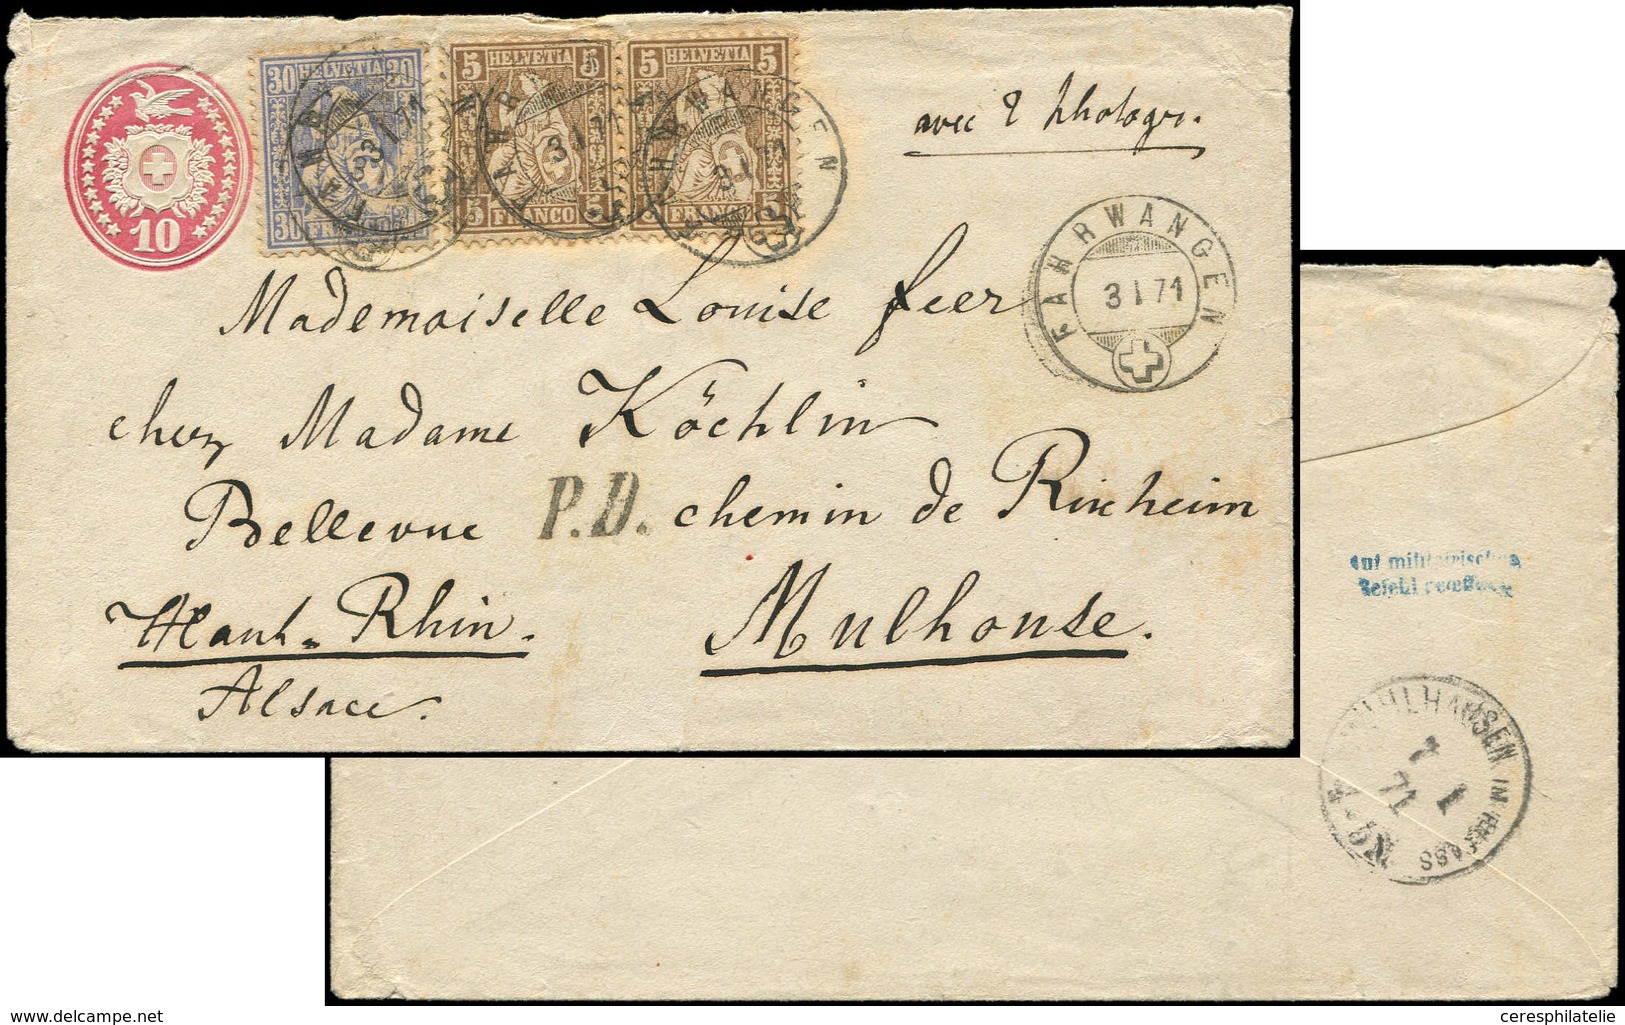 10
30 HELVETIA 30
30 FRANCO
5 HELVETIA 5
5 FRANCO 5
5 HELVETIA 5
FRANCO 5
FAHRWANGEN
3 I 71
avec 2 photogr.
FAHRWANGEN
3 I 71
Mademoiselle Louise feer
chez Madame Köchlin
Bellevue P.D. chemin de Rixheim
Haut-Rhin. Mulhouse.
Alsace.
auf militairischen
Befehl geöffnet
MÜLHAUSEN IM ELSASS
7 1
71
www.delcampe.net
ceresphilatelie